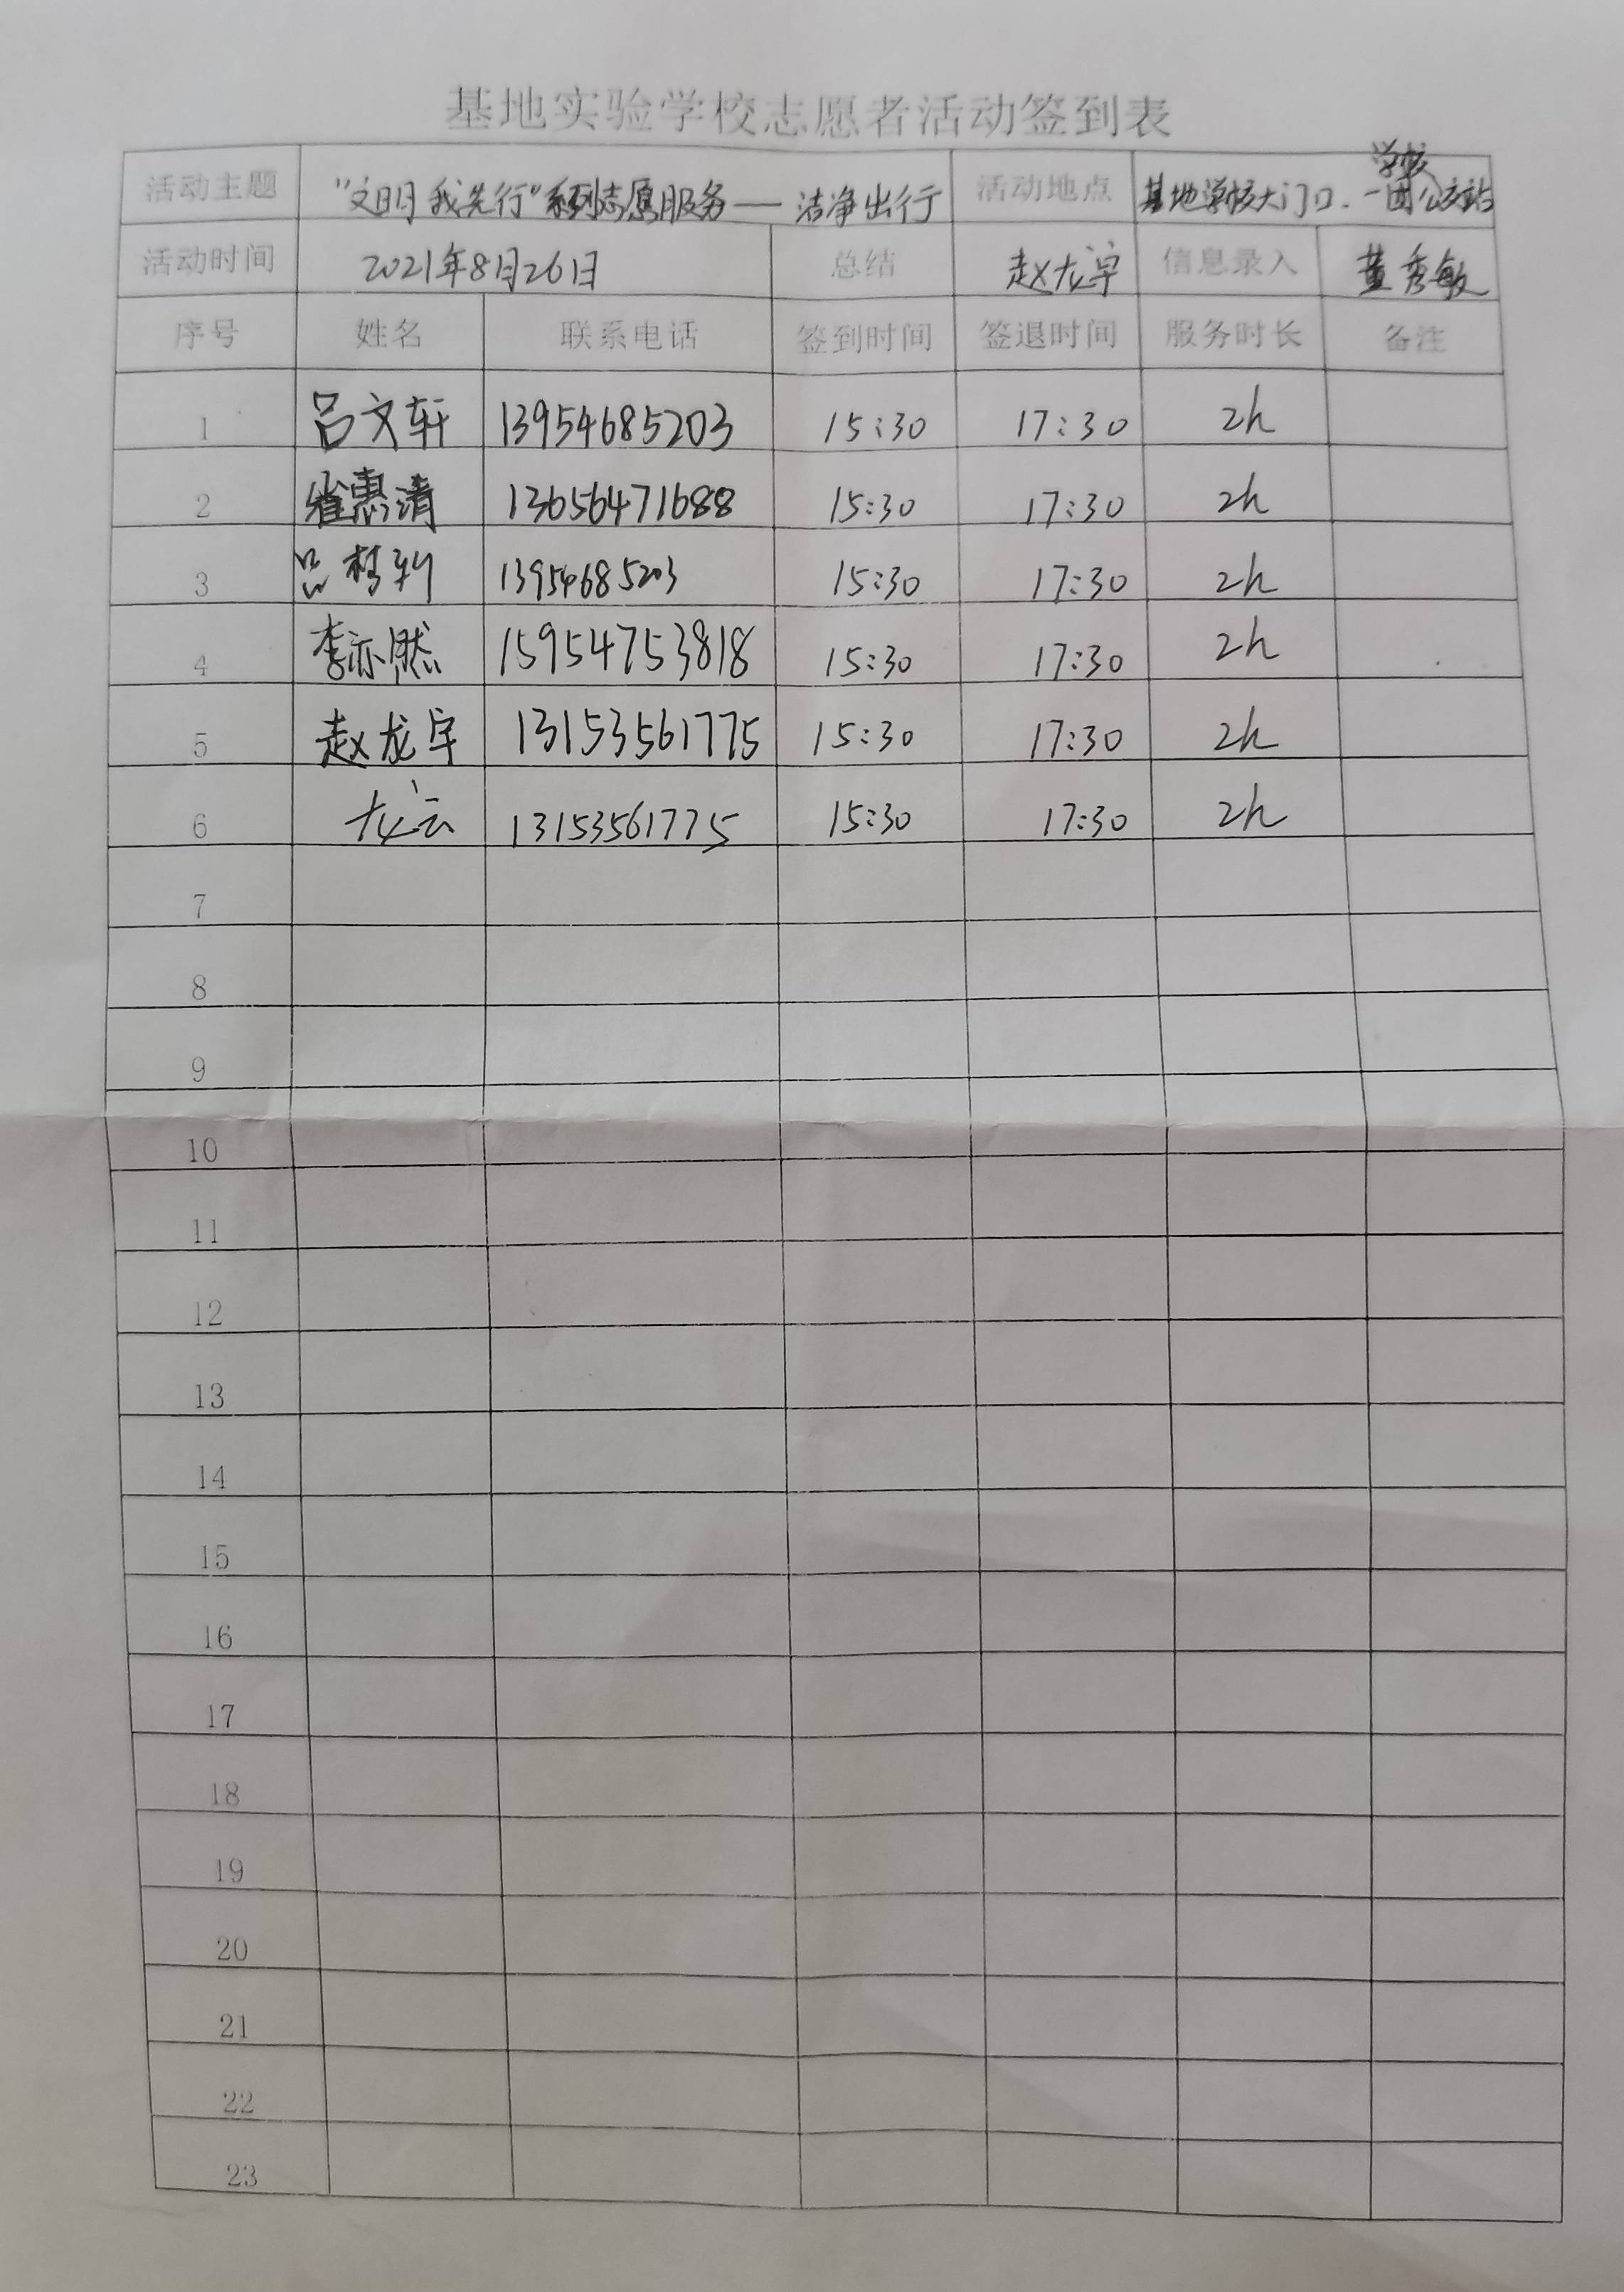 基地实验学校志愿者活动签到表
活动主题 "文明我先行"系列志愿服务——洁净出行 活动地点 基地学校大门口、学校一团公交站
活动时间 2021年8月26日 总结 赵龙宇 信息录入 董秀敏
序号 姓名 联系电话 签到时间 签退时间 服务时长 备注
1 吕文轩 13954685203 15:30 17:30 2h
2 崔惠清 13656471688 15:30 17:30 2h
3 吕 13954685203 15:30 17:30 2h
4 李亦然 15954753818 15:30 17:30 2h
5 赵龙宇 13153561775 15:30 17:30 2h
6 龙云 13153561775 15:30 17:30 2h
7
8
9
10
11
12
13
14
15
16
17
18
19
20
21
22
23